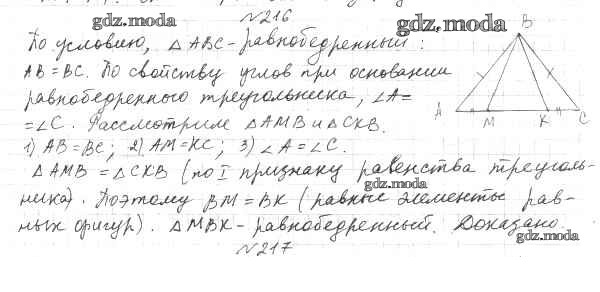 №216
gdz.moda
gdz.moda
По условию, △ABC - равнобедренный:
AB = BC. По свойству углов при основании
равнобедренного треугольника, ∠A =
= ∠C. Рассмотрим △AMB и △CKB.
1) AB = BC; 2) AM = KC; 3) ∠A = ∠C.
△AMB = △CKB (по I признаку равенства треуголь-
gdz.moda
ника). Поэтому BM = BK (равные элементы рав-
gdz.moda
ных фигур). △MBK - равнобедренный. Доказано.
gdz.moda
№217
B
A
M
K
C